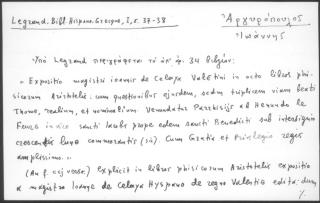 Legrand. Bibl. Hispano-Grecque, I, σ. 37-38
Ἀργυρόπουλος
Ἰωάννης
Ὑπὸ Legrand περιγράφεται τὸ ὑπ' ἀρ. 34 βιβλίον:
« Expositio magistri ioannis de Celaya Valentini in octo libros phi-
sicorum Aristotelis: cum questionibus ejusdem, secundum triplicem viam beati
Thome, realium, et nominalium. Venundatur Parrhisijs ab Hemundo le
Feure in vico sancti Iacobi prope edem sancti Benedicti sub intersignio
crescentis lune commorantis (sic). Cum Gratia et Priuilegio regis
amplissimo... »
explicit in libros phisicorum Aristotelis expositio
a magistro Ioanne de Celaya Hyspano de regno Valentie edita: dum